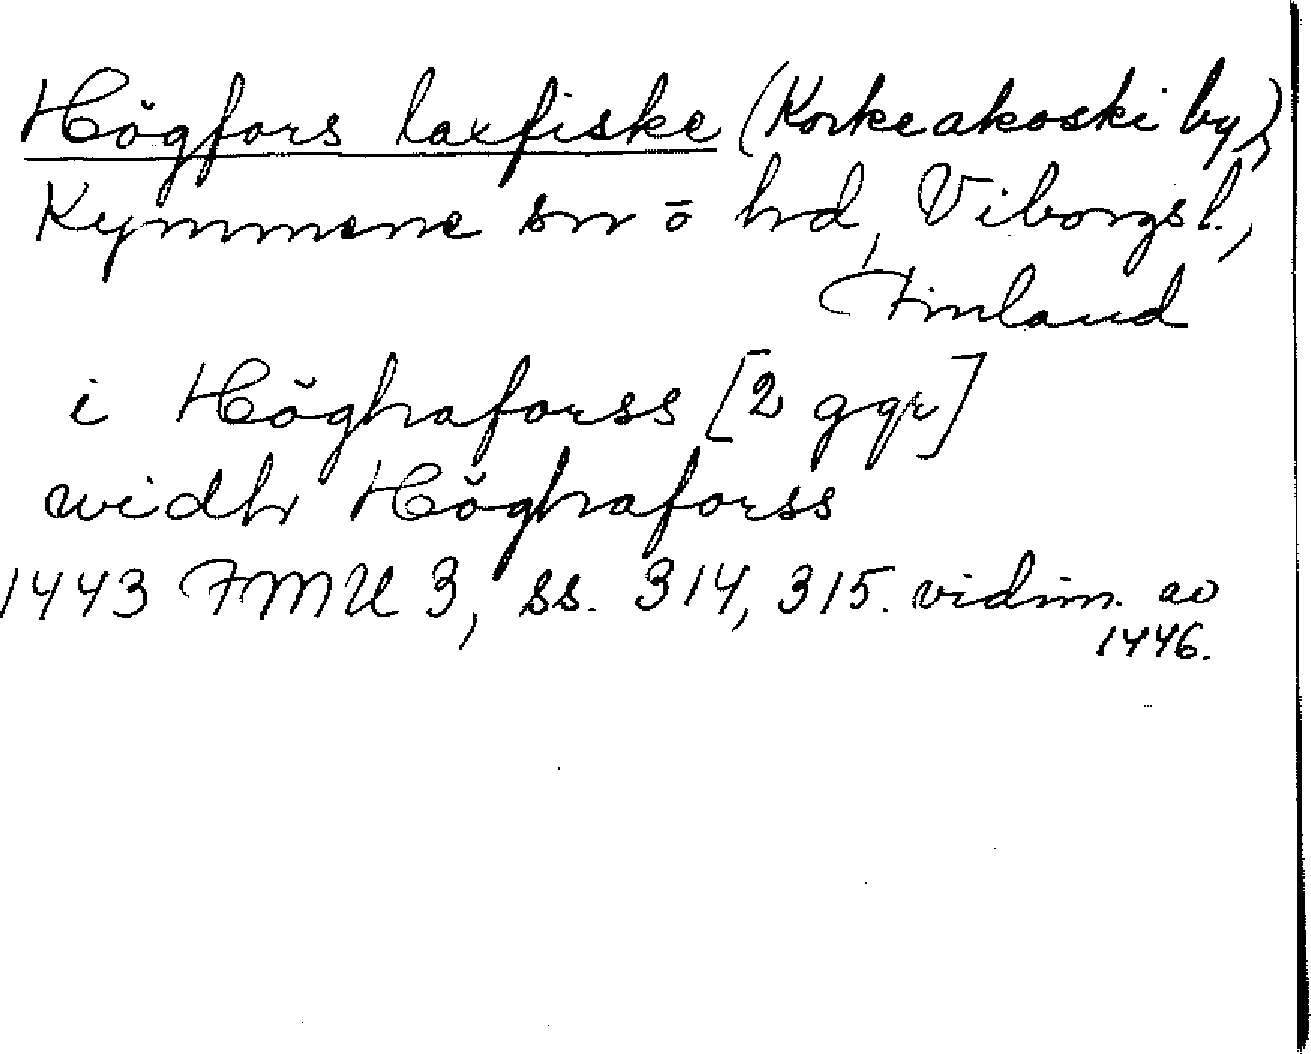 Högfors laxfiske (Korkeakoski by),
Kymmene sn ö hd, Viborgs l.,
Finland
i Höghaforss [2 ggr]
widh Höghaforss
1443 FMU 3, ss. 314, 315. vidim. av
1446.